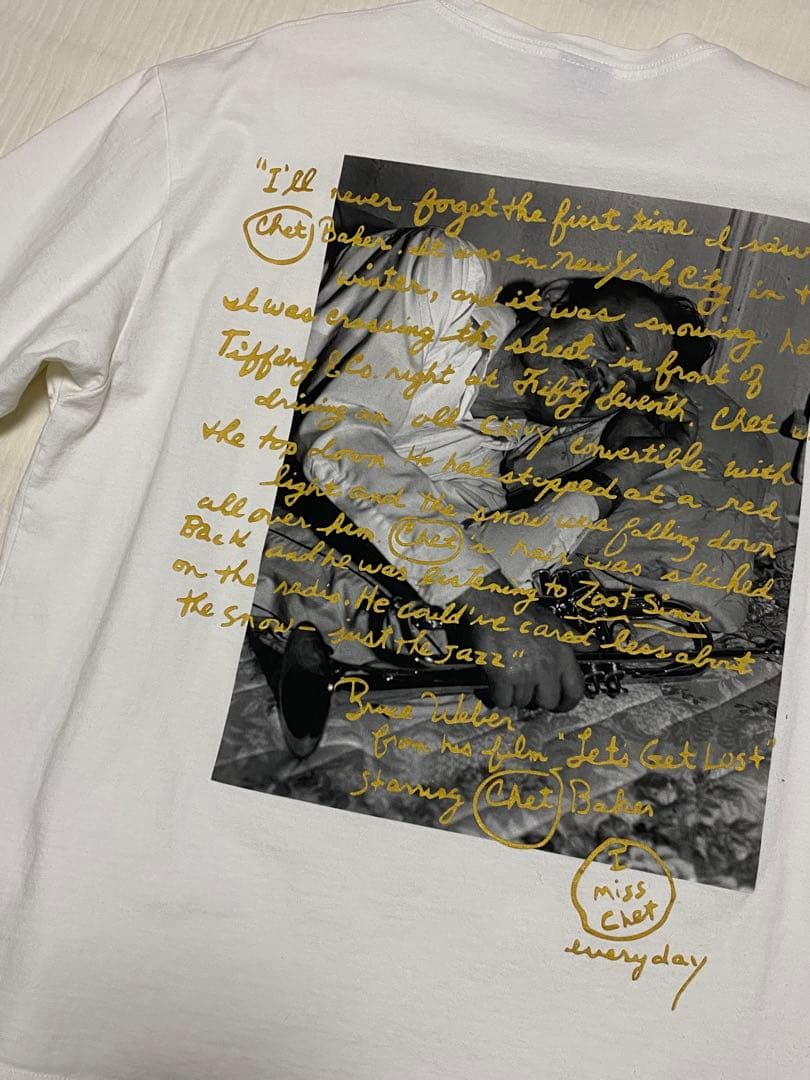 "I'll never forget the first time I saw
Chet Baker. It was in New York City in t
winter, and it was snowing ha
I was crossing the street, in front of
Tiffany & Co. right at Fifty Seventh. Chet w
driving an old Chevy convertible with
the top down. He had stopped at a red
light and the snow was falling down
all over him. Chet's hair was slicked
Back and he was listening to Zoot Sims
on the radio. He could've cared less about
the snow - just the jazz"
Bruce Weber
from his film "Let's Get Lost"
starring Chet Baker
I
miss
Chet
everyday